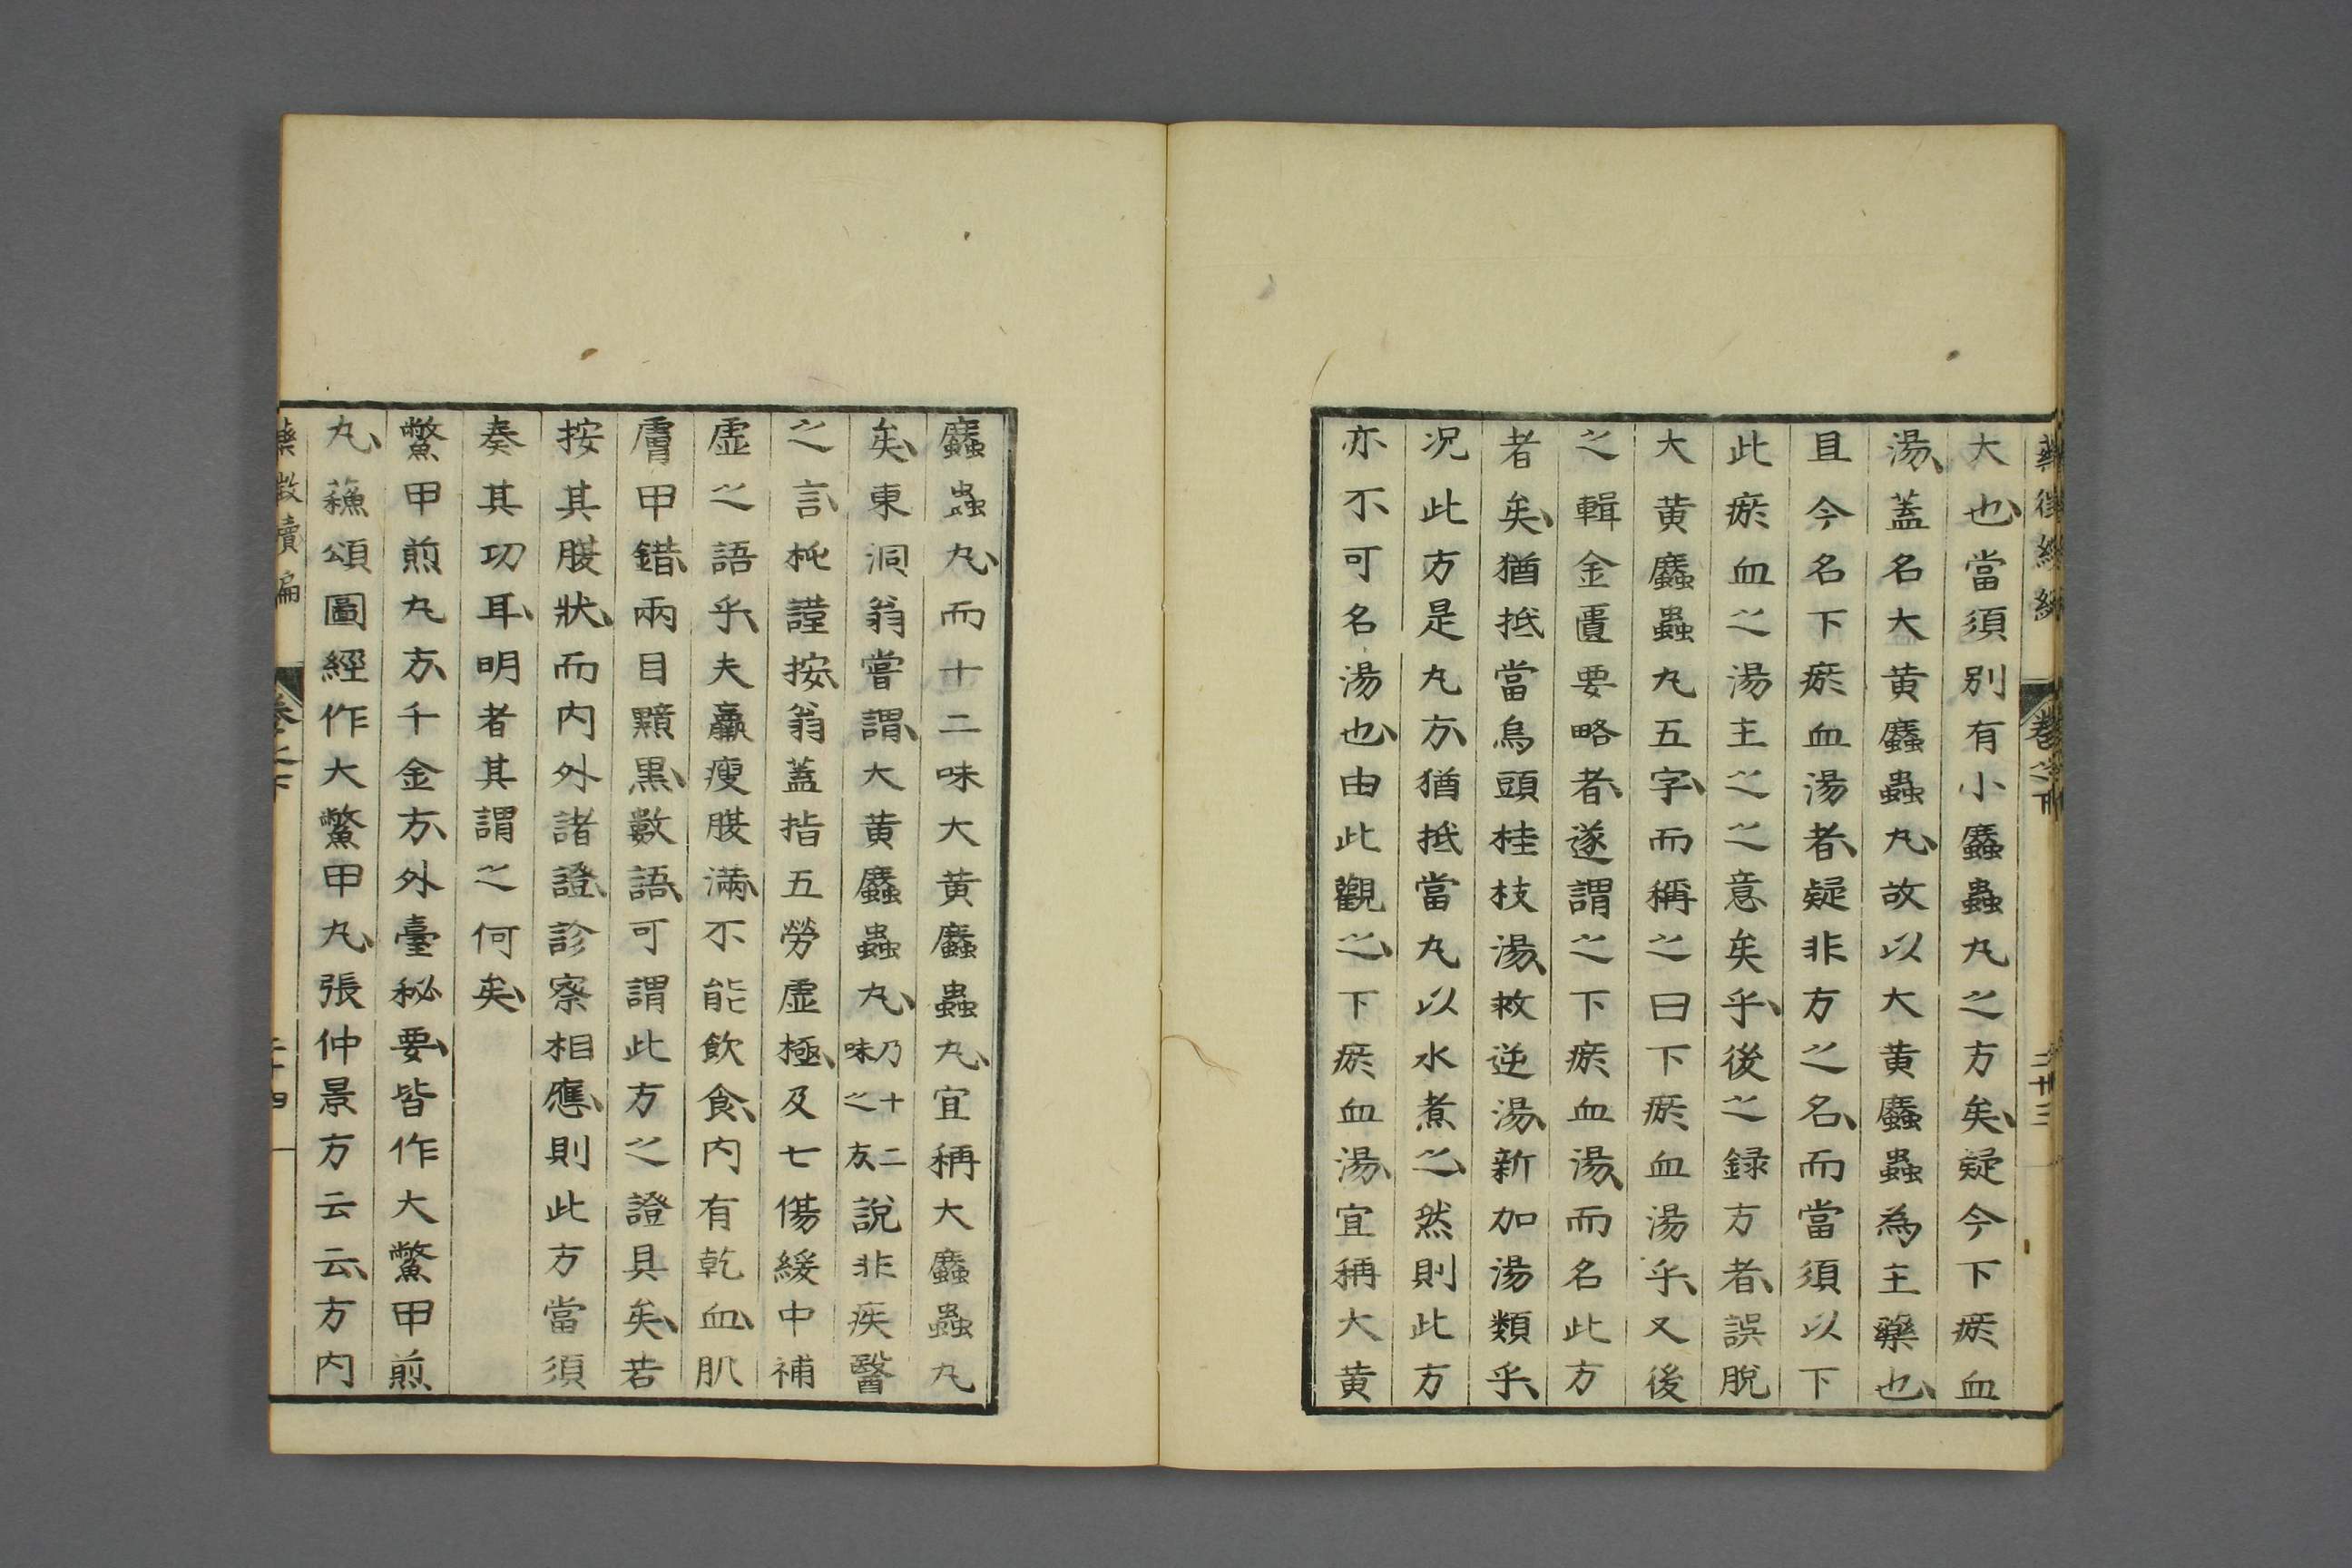 大也、當須別有小䗪蟲丸之方矣、疑今下瘀血
湯、蓋名大黄䗪蟲丸、故以大黄䗪蟲為主藥也、
且今名下瘀血湯者、疑非方之名、而當須以下
此瘀血之湯主之之意矣乎、後之録方者、誤脫
大黄䗪蟲丸五字、而稱之曰下瘀血湯乎、又後
之輯金匱要略者、遂謂之下瘀血湯、而名此方
者矣、猶抵當烏頭桂枝湯、救逆湯、新加湯類乎、
况此方是丸方、猶抵當丸以水煮之、然則此方
亦不可名湯也、由此觀之、下瘀血湯、宜稱大黄
䗪蟲丸、而十二味大黄䗪蟲丸、宜稱大䗪蟲丸
矣、東洞翁嘗謂、大黄䗪蟲丸、乃十二味之方、說非疾醫
之言、㐌謹按、翁蓋指五勞虛極、及七傷緩中補
虛之語乎、夫羸瘦腹滿、不能飲食、内有乾血、肌
膚甲錯、兩目黯黑、數語、可謂此方之證具矣、若
按其腹狀、而内外諸證、診察相應、則此方當須
奏其功耳、明者其謂之何矣、
鱉甲煎丸方、千金方、外臺秘要、皆作大鱉甲煎
丸、蘓頌圖經作大鱉甲丸、張仲景方云云、方内
藥徵續編
卷之下
二十四